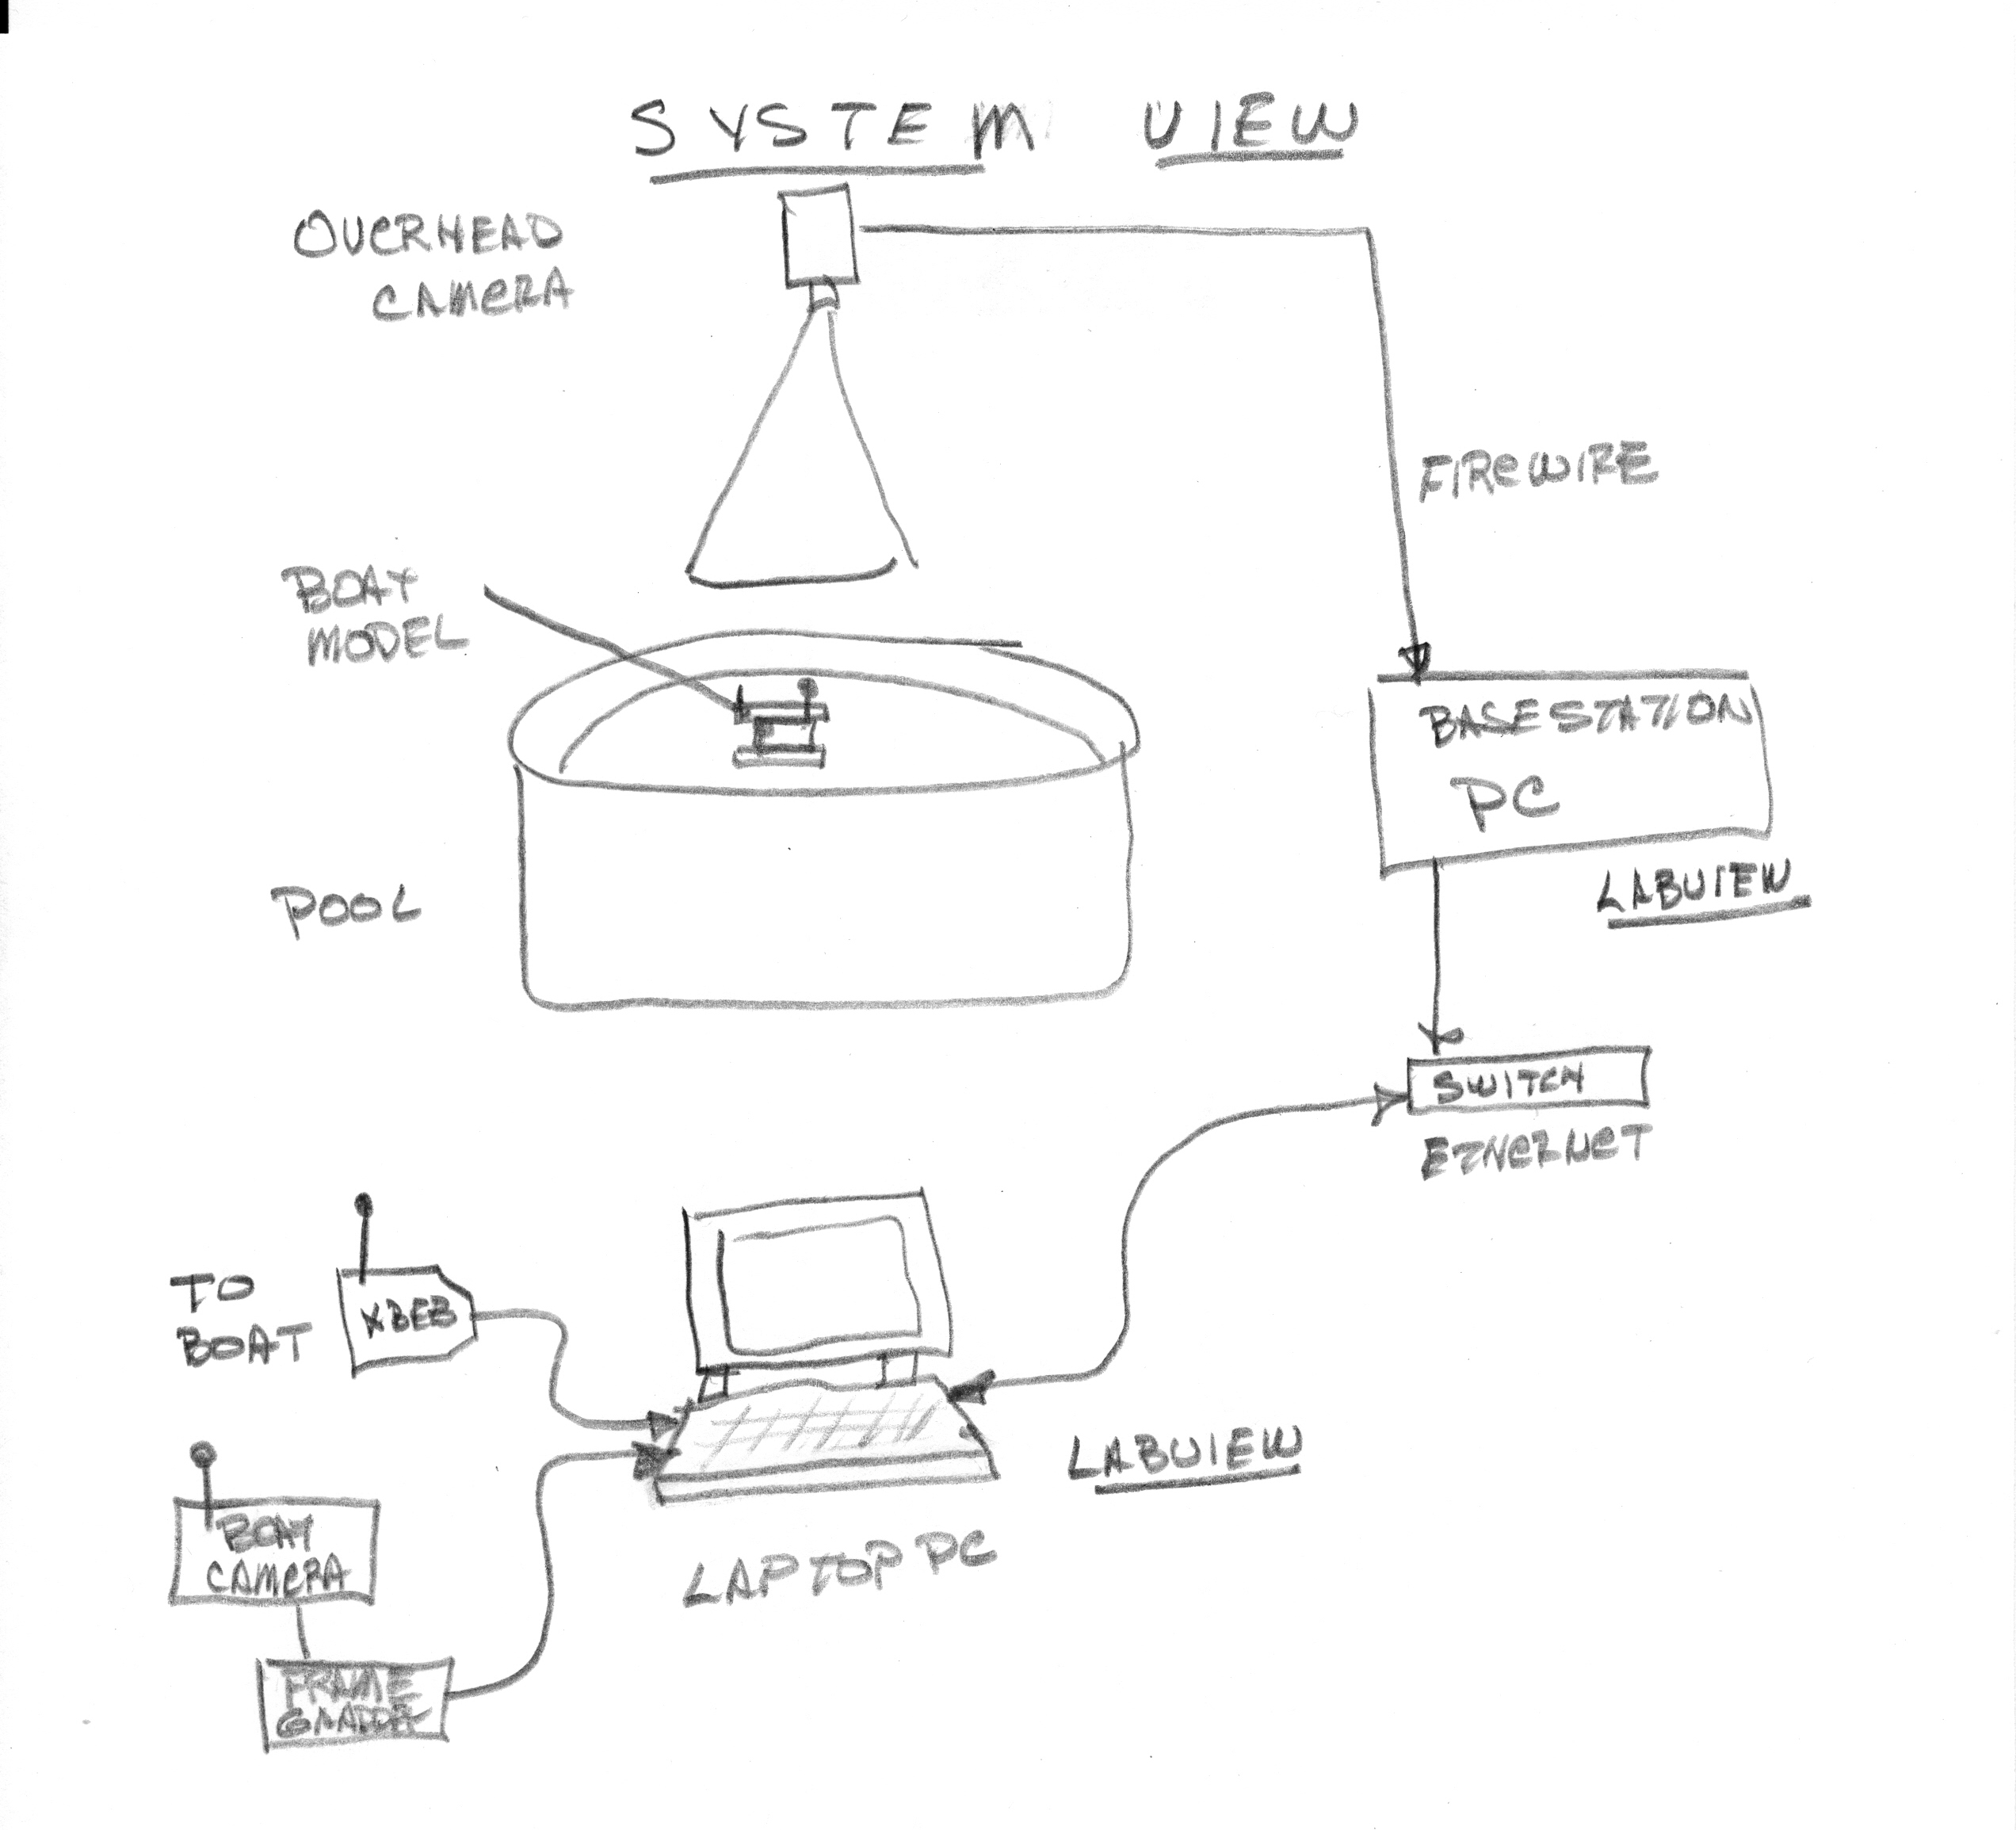 SYSTEM VIEW
OVERHEAD
CAMERA
FIREWIRE
BOAT
MODEL
BASESTATION
PC
LABVIEW
POOL
SWITCH
ETHERNET
TO
BOAT
XBEE
LABVIEW
LAPTOP PC
BOAT
CAMERA
FRAME